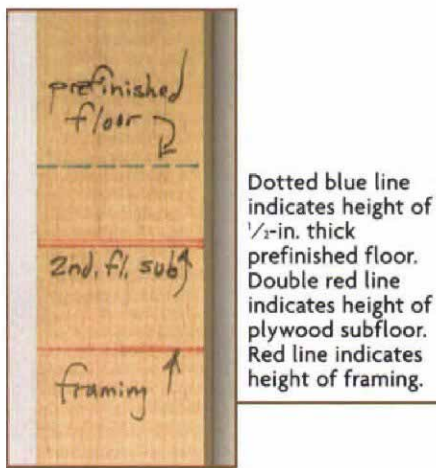 prefinished
floor
2nd. fl. sub
framing
Dotted blue line
indicates height of
1/2-in. thick
prefinished floor.
Double red line
indicates height of
plywood subfloor.
Red line indicates
height of framing.